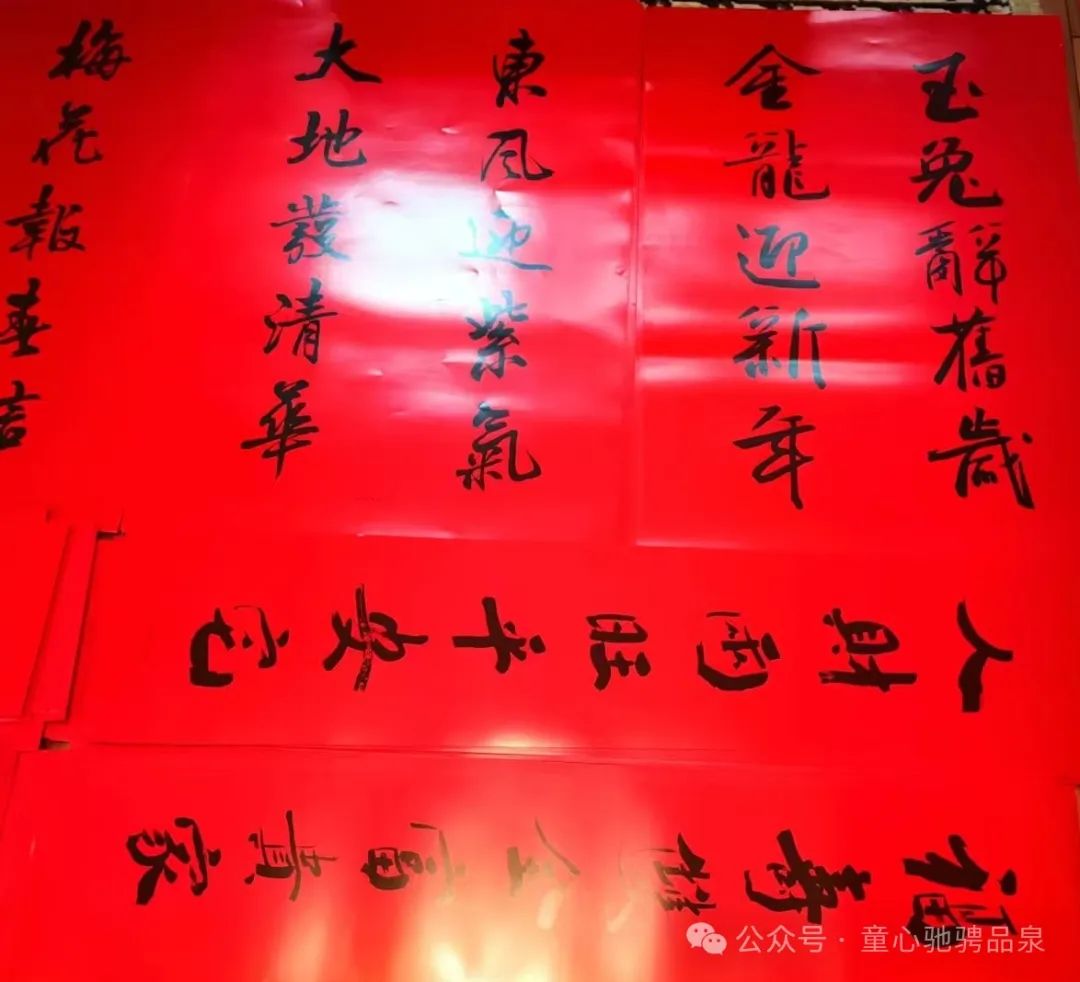 玉兔辭舊歲
金龍迎新年
東風迎紫氣
大地發清華
梅花報春吉
人財兩旺平安宅
福壽雙全富貴家
公众号·童心驰骋品泉